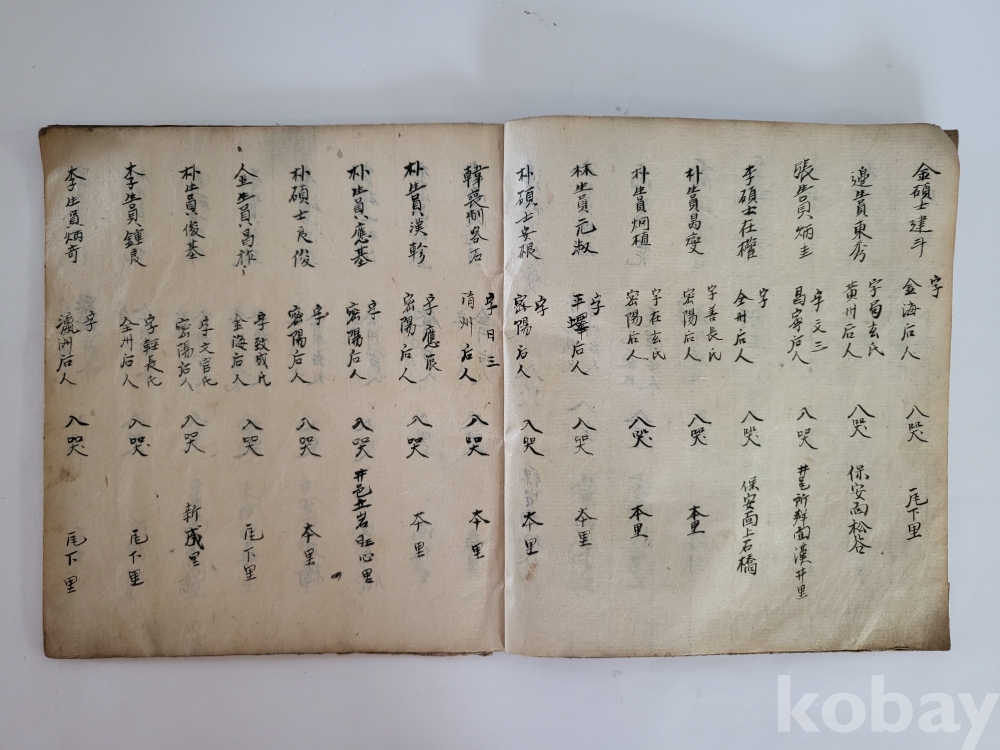 金碩士建斗 字 金海后人 入哭 辰下里
邉生員東秀 字菊玄氏 黃州后人 入哭 保安面松谷
張生員炳圭 字文三 昌寧后人 入哭 井邑所群面漢井里
李碩士在權 字 全州后人 入哭 保安面上石橋
朴生員昌燮 字善長氏 密陽后人 入哭 本里
朴生員炯植 字在玄氏 密陽后人 入哭 本里
林生員元淑 字 平澤后人 入哭 本里
朴碩士安根 字 密陽后人 入哭 本里
韓喪制 字日三 清州后人 入哭 本里
朴生員漢軫 字應辰 密陽后人 入哭 本里
朴生員應基 字 密陽后人 入哭 井邑立岩旺心里
朴碩士良俊 字 密陽后人 入哭 本里
金生員昌祚 字致成氏 金海后人 入哭 辰下里
朴生員俊基 字文官氏 密陽后人 入哭 新成里
李生員鍾良 字長氏 全州后人 入哭 辰下里
李生員炳奇 字 瀛洲后人 入哭 辰下里
kobay